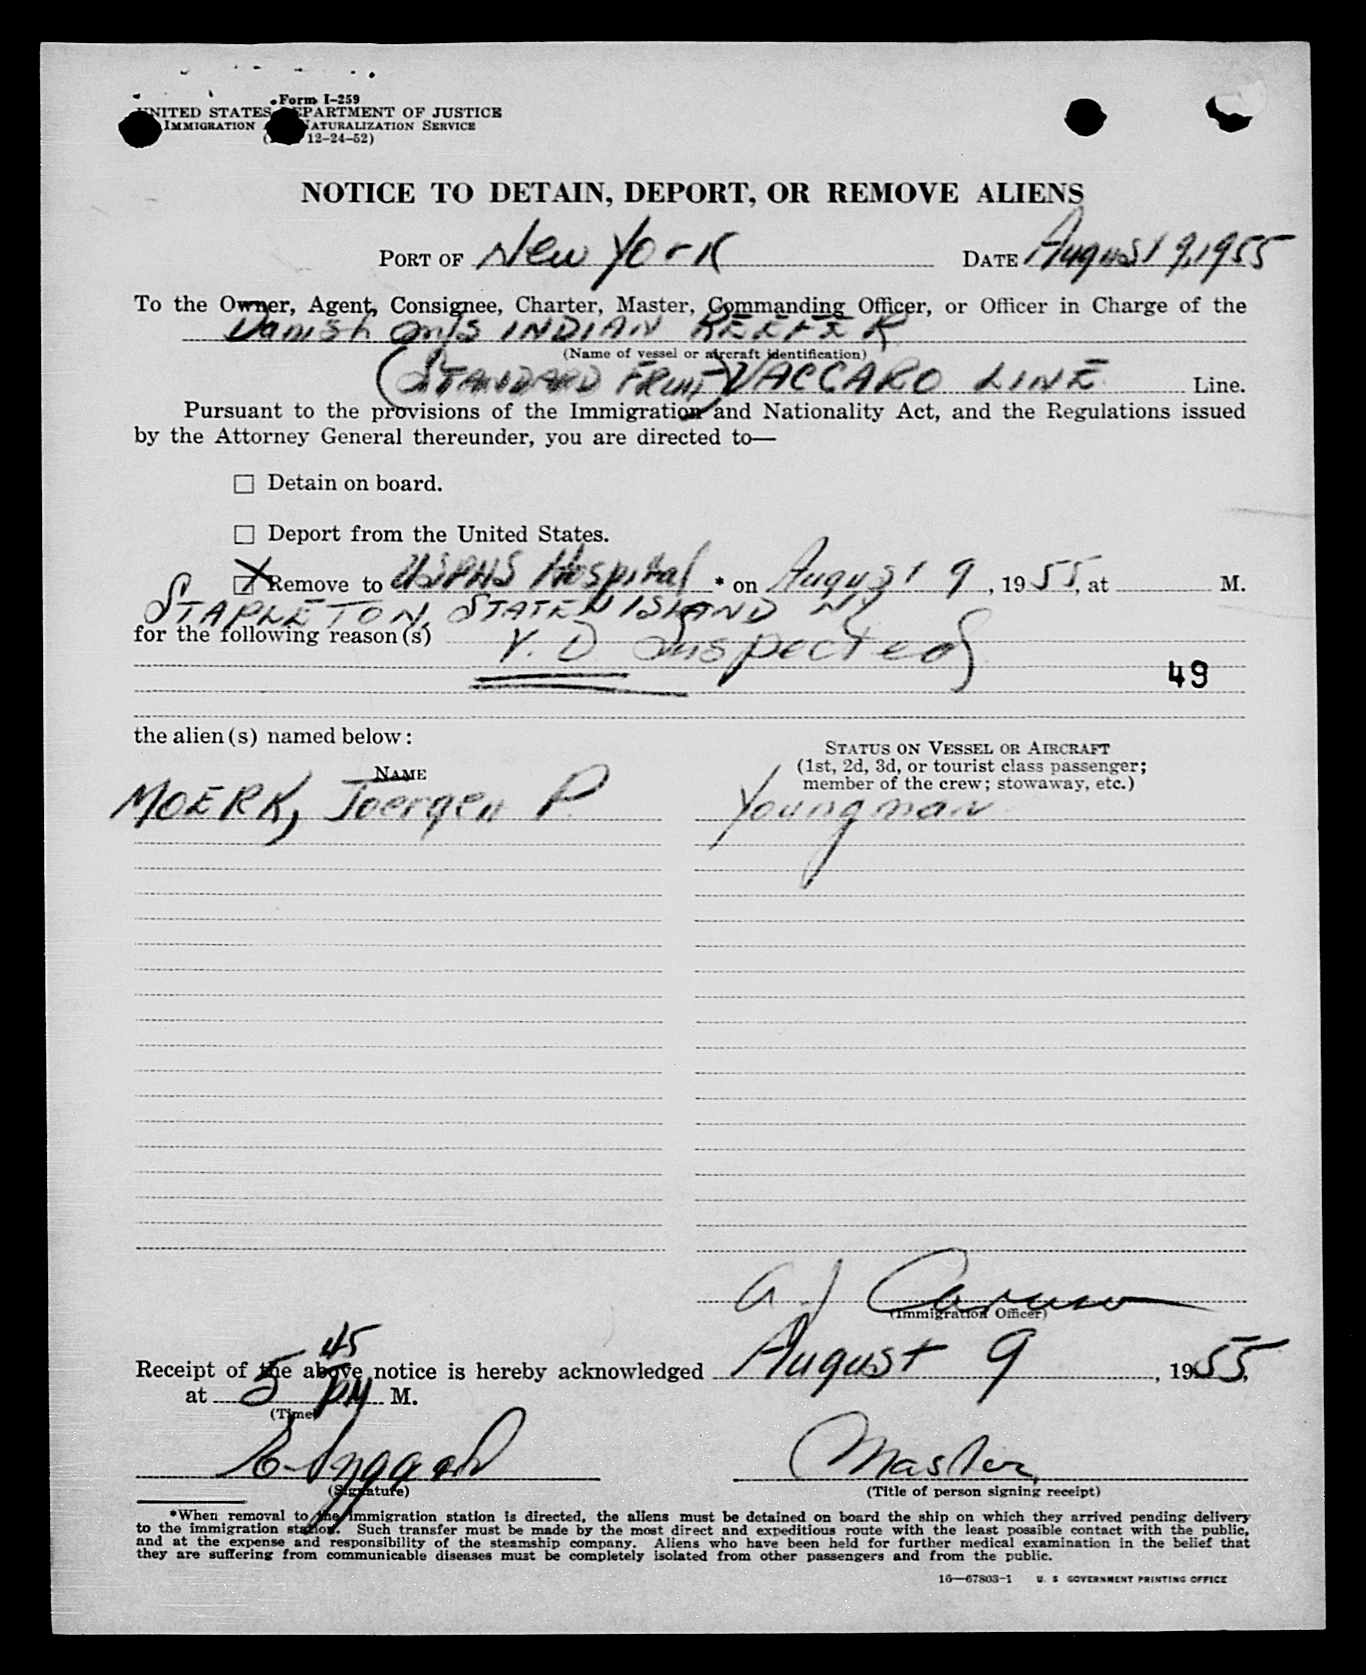 Form I-259
UNITED STATES DEPARTMENT OF JUSTICE
IMMIGRATION NATURALIZATION SERVICE
12-24-52)
NOTICE TO DETAIN, DEPORT, OR REMOVE ALIENS
PORT OF New York DATE August 9, 1955
To the Owner, Agent, Consignee, Charter, Master, Commanding Officer, or Officer in Charge of the
Danish m/s INDIAN REEFER
(Name of vessel or aircraft identification)
(STANDARD FRUIT) VACCARO LINE Line.
Pursuant to the provisions of the Immigration and Nationality Act, and the Regulations issued
by the Attorney General thereunder, you are directed to—
☐ Detain on board.
☐ Deport from the United States.
☒ Remove to USPHS Hospital * on August 9, 1955, at M.
STAPLETON, STATEN ISLAND NY
for the following reason(s) V.D Suspected
49
the alien(s) named below:
STATUS ON VESSEL OR AIRCRAFT
(1st, 2d, 3d, or tourist class passenger;
NAME
member of the crew; stowaway, etc.)
MOERK, Joergen P. Youngman
A J Caruso
(Immigration Officer)
45
Receipt of the above notice is hereby acknowledged August 9, 1955,
at 5 PM M.
(Time)
Master
(Signature) (Title of person signing receipt)
*When removal to the immigration station is directed, the aliens must be detained on board the ship on which they arrived pending delivery
to the immigration station. Such transfer must be made by the most direct and expeditious route with the least possible contact with the public,
and at the expense and responsibility of the steamship company. Aliens who have been held for further medical examination in the belief that
they are suffering from communicable diseases must be completely isolated from other passengers and from the public.
16—67803-1 U. S. GOVERNMENT PRINTING OFFICE